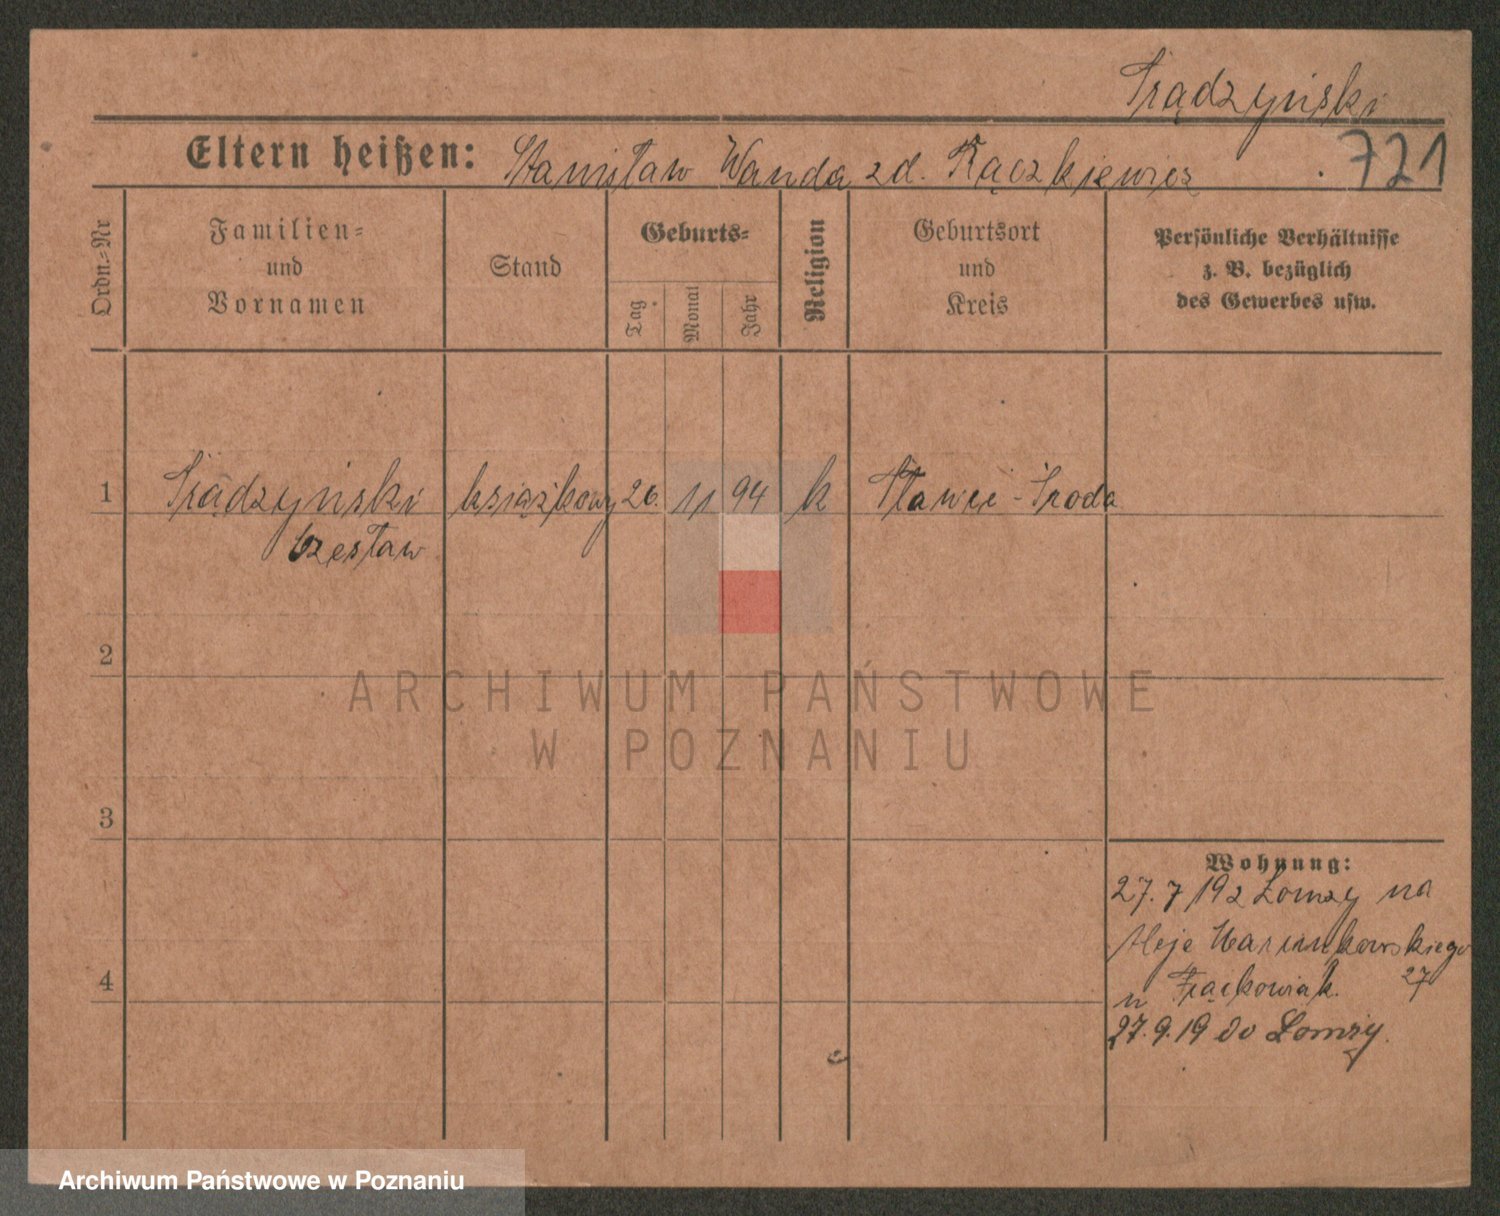 Trądzyński
Eltern heißen: Stanisław Wanda zd. Rączkiewicz
721
Ordn.-Nr
Familien-
und
Vornamen
Stand
Geburts-
Tag
Monat
Jahr
Religion
Geburtsort
und
Kreis
Persönliche Verhältnisse
z. B. bezüglich
des Gewerbes usw.
1 Trądzyński książkowy 26. 11 94 k Pławce - Środa
Czesław
2
ARCHIWUM PAŃSTWOWE
W POZNANIU
3
Wohnung:
27.7 19 z Łomży na
Aleje Marcinkowskiego
27
u Frąckowiak.
4
27.9.19 do Łomży.
Archiwum Państwowe w Poznaniu